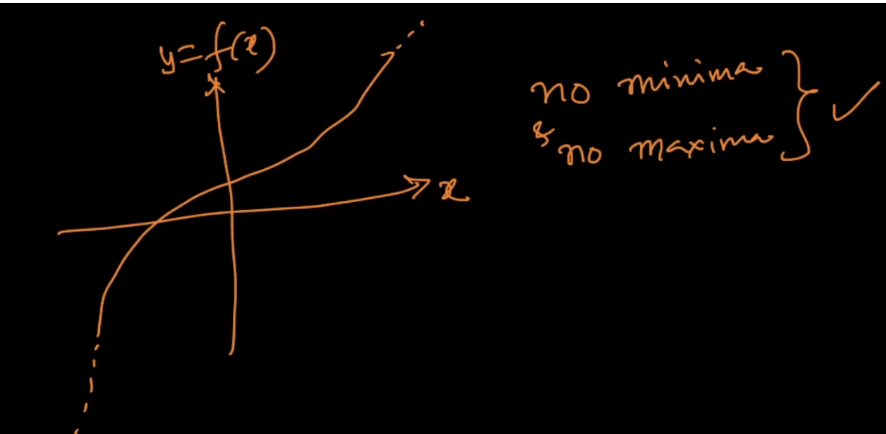 y=f(x)
no minima
& no maxima
x